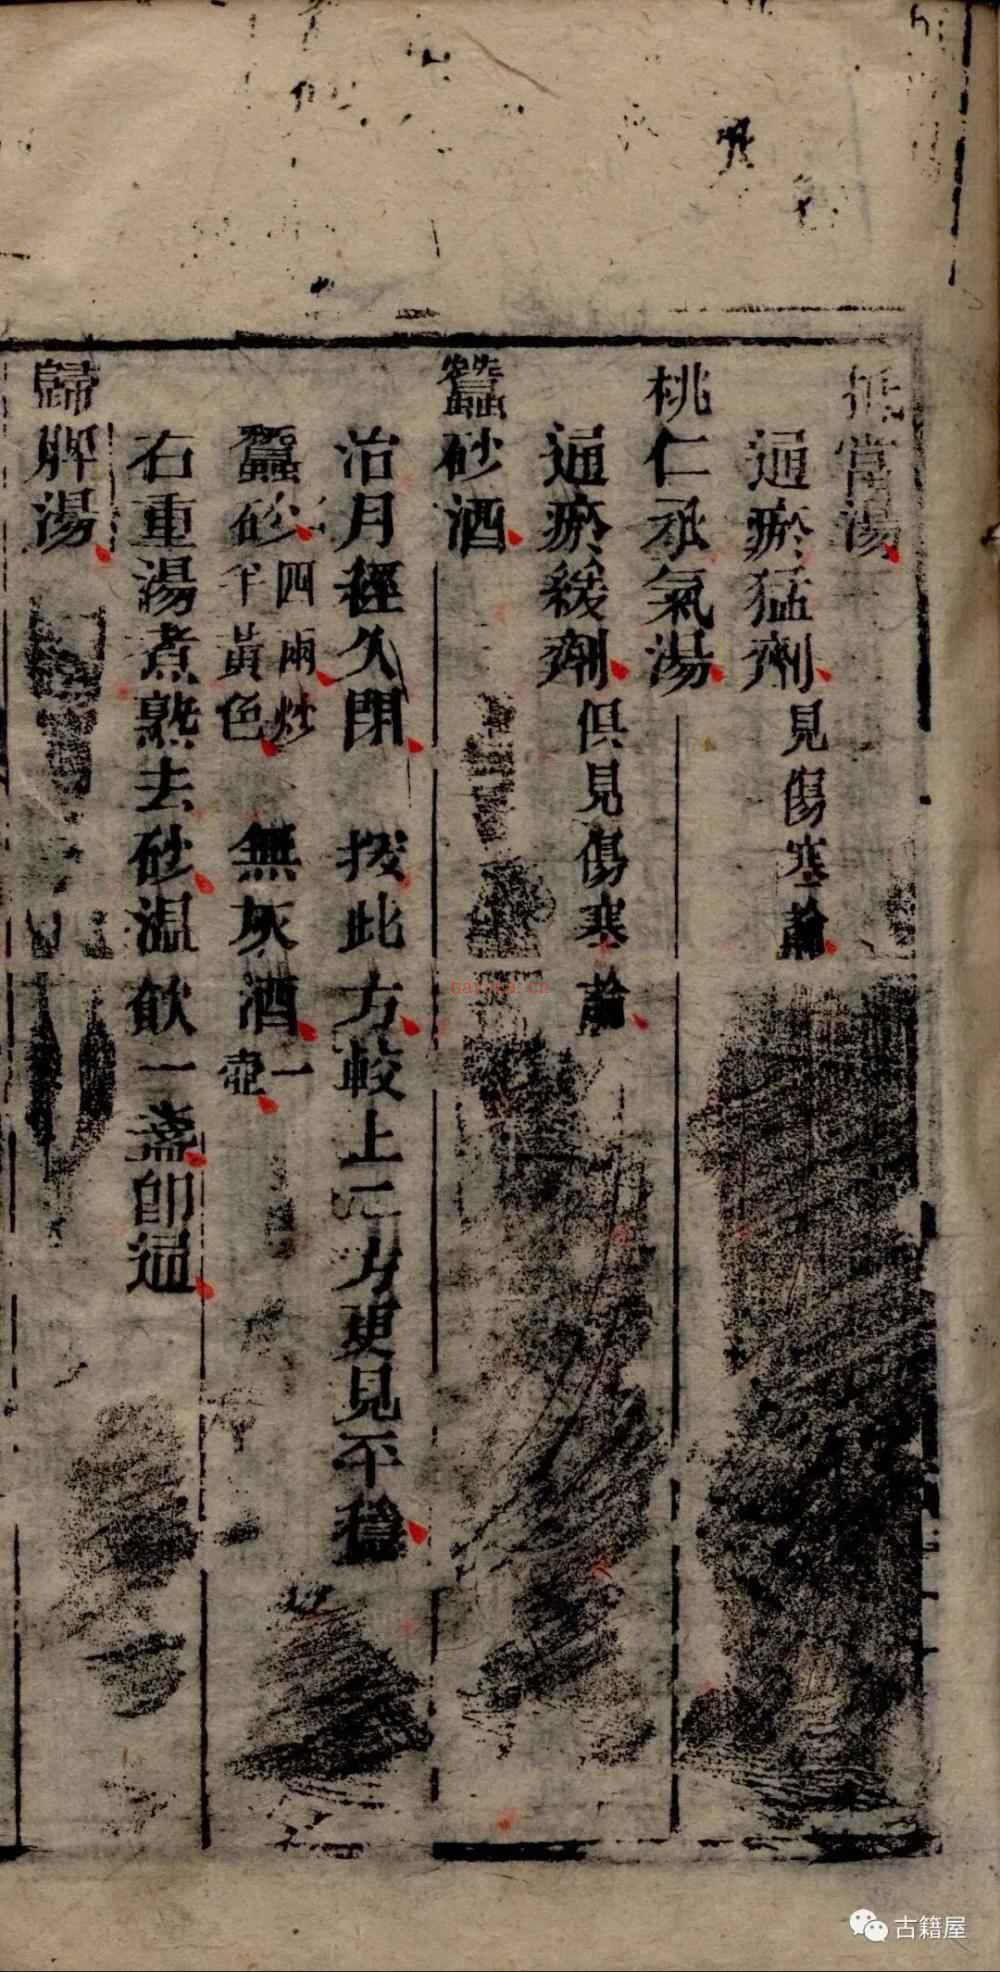 抵當湯
通瘀猛劑見傷寒論
桃仁承氣湯
通瘀緩劑俱見傷寒論
蠶砂酒
治月經久閉　按此方較上二方更見平穩
蠶砂四兩炒半黃色　無灰酒一壺
右重湯煮熟去砂溫飲一盞即通
歸脾湯
naxima.cn
古籍屋